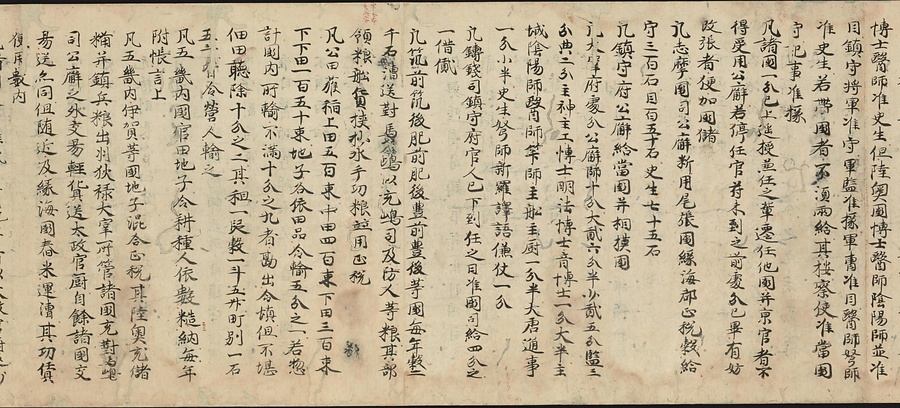 博士醫師准史生但陸奥國博士醫師陰陽師並准
目鎮守將軍准守軍監准掾軍曹准目醫師弩師
准史生若帶國者不須兩給其按察使准當國
守記事准掾
凡諸國一分已上遥授兼任之輩遷任他國并京官者不
得受用公廨若停任官符未到之前處分已畢有妨
改張者便加國儲
凡志摩國司公廨断用尾張國縁海郡正税穀給
守三百石目百五十石史生七十五石
凡鎮守府公廨給當國并相摸國
凡大宰府處分公廨師十分大貳六分半少貳五分監三
分典二分主神主工博士明法博士音博士一分大半主
城陰陽師醫師筭師主舩主厨一分半大唐通事
一分小半史生弩師新羅譯語傔仗一分
凡鑄錢司鎮守府官人已下到任之日准國司給四分之
一借貸
凡筑前筑後肥前肥後豊前豊後等國毎年穀二
千石漕送對馬嶋以充嶋司及防人等粮其部
領粮舩賃挟杪水手功粮並用正税
凡公田獲稲上田五百束中田四百束下田三百束
下下田一百五十束地子各依田品令輸五分之一若惣
計國内所輸不満十分之九者勘出令填但不堪
佃田聴除十分之二其租一段穀一斗五升町別一石
五斗皆令營人輸之
凡五畿内國官田地子令耕種人依數糙納毎年
附帳言上
凡五畿内伊賀等國地子混合正税其陸奥充儲
糒并鎮兵粮出羽狄禄大宰所管諸國充對馬嶋
司公廨之外交易軽貨送太政官厨自餘諸國交
易送亦同但随近及縁海國舂米運漕其功賃
便用數内